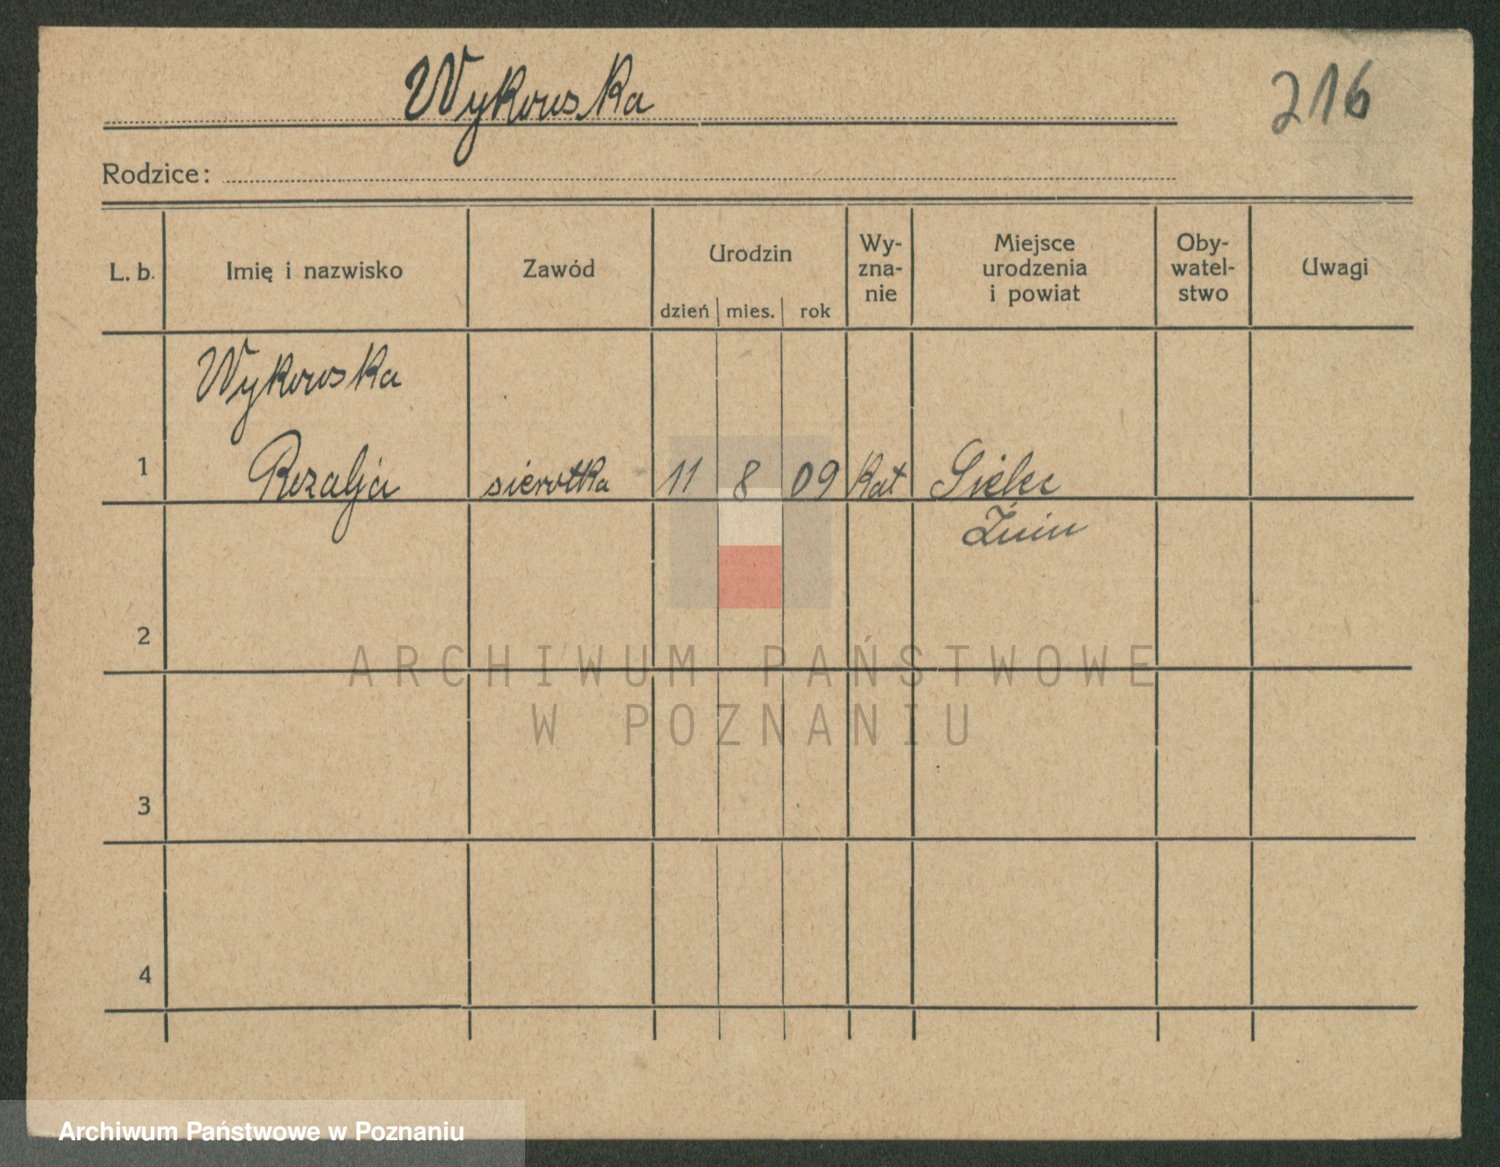 Wykowska
216
Rodzice:
L. b. Imię i nazwisko Zawód Urodzin dzień mies. rok Wy-zna-nie Miejsce urodzenia i powiat Oby-watel-stwo Uwagi
Wykowska
1 Rozalja sierotka 11 8 09 Kat Sielec
Żnin
2
ARCHIWUM PAŃSTWOWE
W POZNANIU
3
4
Archiwum Państwowe w Poznaniu